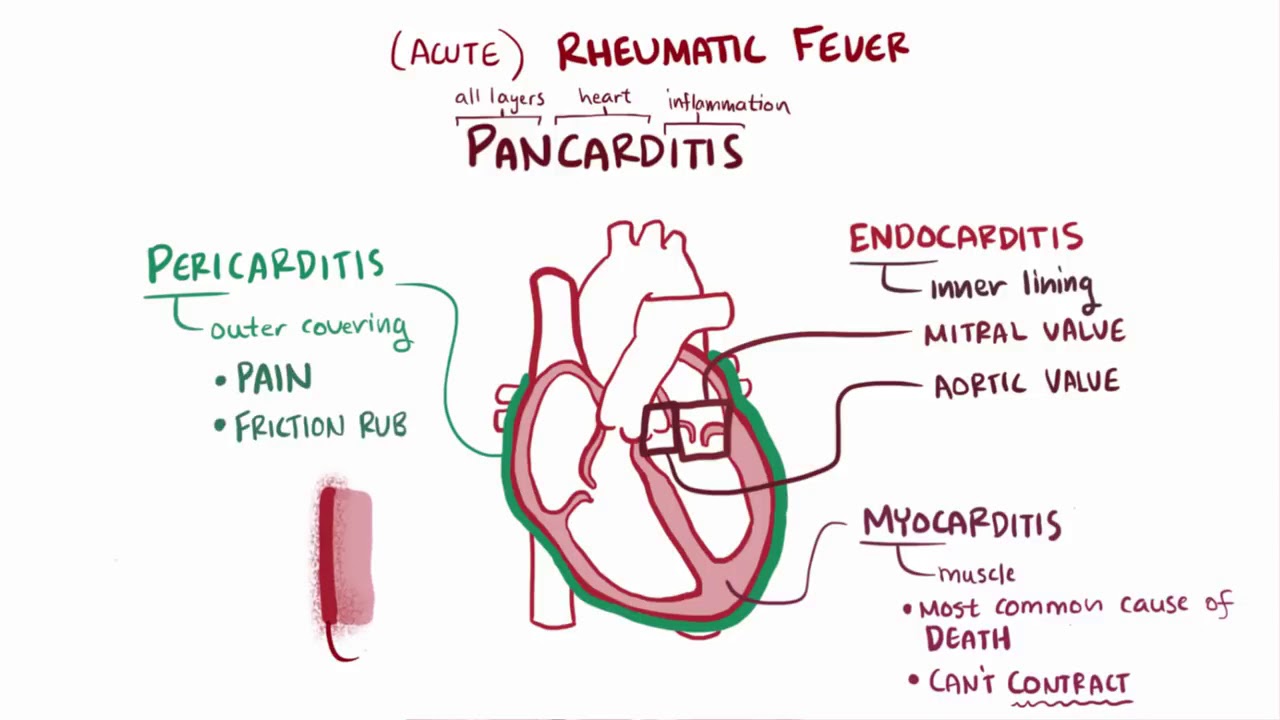 (ACUTE) RHEUMATIC FEVER
all layers heart inflammation
PANCARDITIS
PERICARDITIS
outer covering
• PAIN
• FRICTION RUB
ENDOCARDITIS
inner lining
MITRAL VALVE
AORTIC VALVE
MYOCARDITIS
muscle
• MOST COMMON CAUSE OF
DEATH
• CAN'T CONTRACT